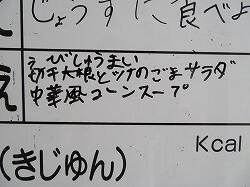 じょうずに食べよ
えびしゅうまい
切干大根とツナのごまサラダ
中華風コーンスープ
え
Kcal
(きじゅん)